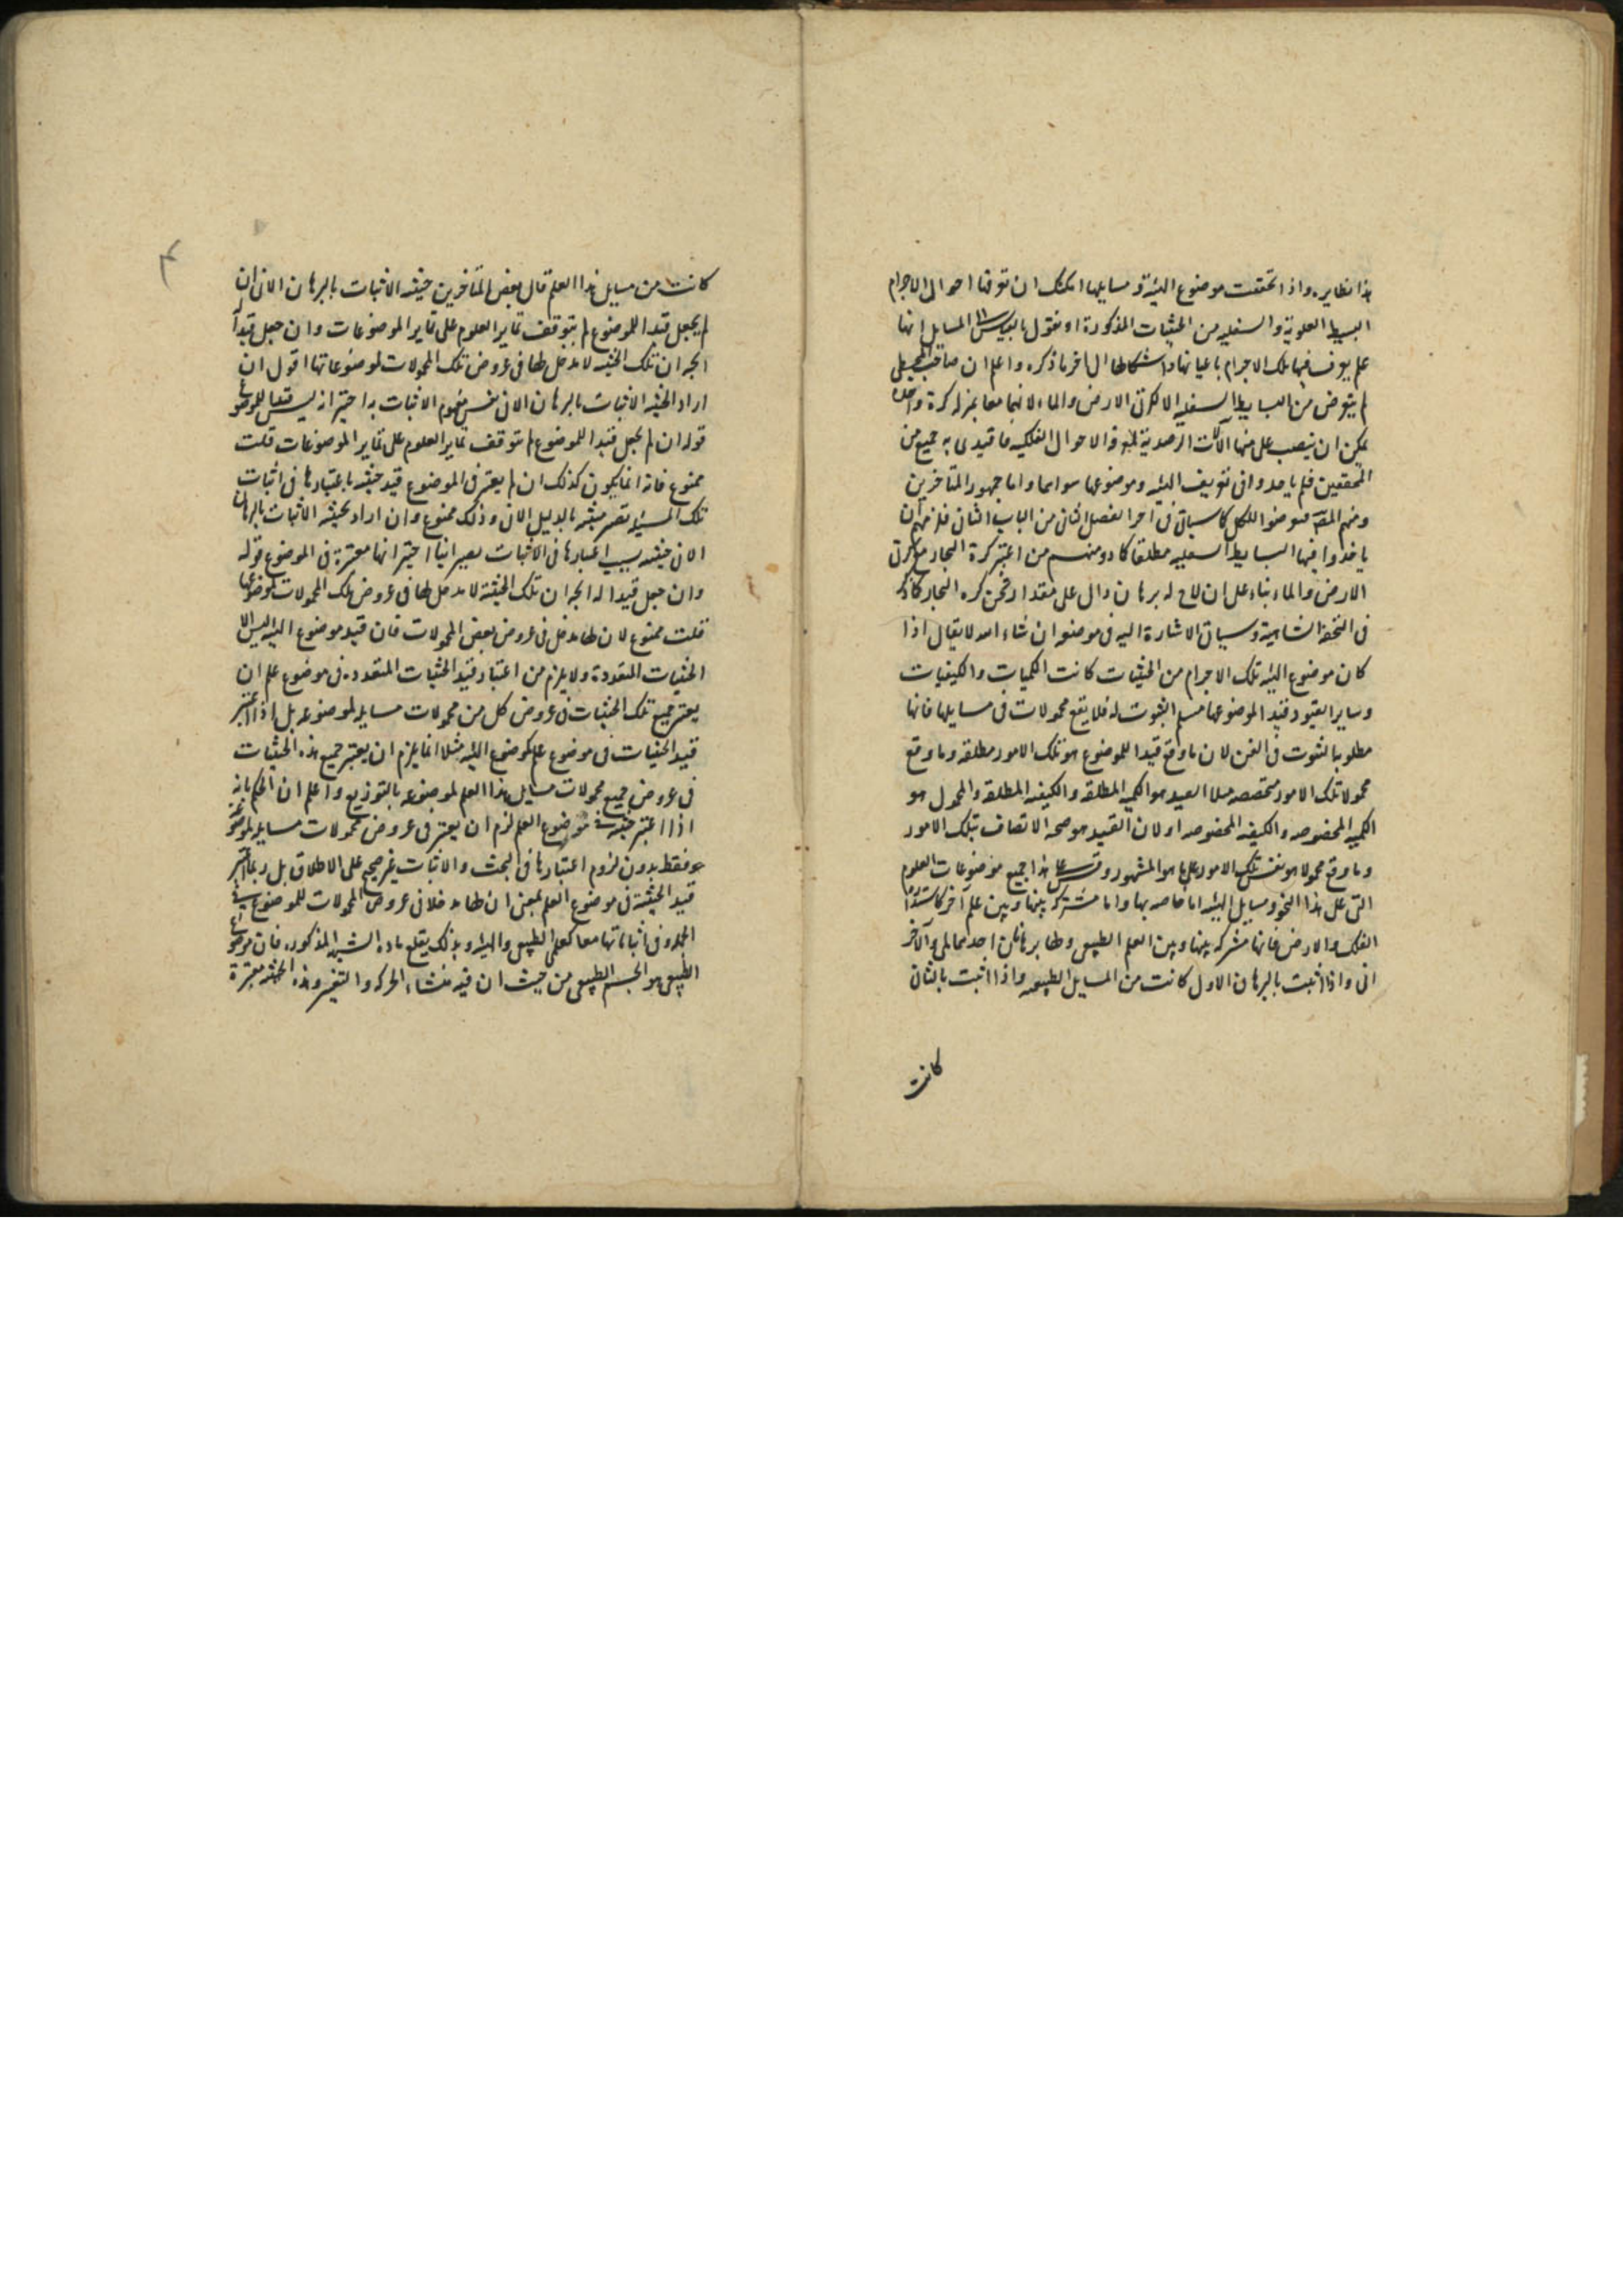 هذا نظايره واذا تحققت موضوع الهيئة و مسايلها امكنك ان تعرفها احوال الاجرام
البسيطة العلوية والسفلية من الحيثيات المذكورة او نقول بالقياس الى المسايل انها
علم يعرف فيها تلك الاجرام باعيانها واشكالها الى اخر ما ذكره واعلم ان صاحب المجسطى
لم يتعرض من البسايط السفلية الا لكرتى الارض والماء لانهما معا بمنزله كرة واحدة
يمكن ان ينصب على منها الآلات الرصدية الاحوال الفلكيه فاقتدى به جميع من
المحققين فلم ياخذوا فى تعريف الهيئه وموضوعها سواهما واما جمهور المتاخرين
ومنهم المصنف فتعرضوا للكل كما سياتى فى آخر الفصل الثانى من الباب الثانى فلزمهم ان
ياخذوا فيها البسايط السفليه مطلقا كما ومنهم من اعتبر كرة البخار مع كرتى
الارض والماء بناء على ان لاح له برهان دال على مقدار ثخن كره البخار كما ذكر
فى التحفة الشاهية وسياتى الاشارة اليه فى موضعه ان شاء الله لا يقال اذا
كان موضوع الهيئه تلك الاجرام من الحيثيات كانت الكميات والكيفيات
وساير القيود قيدا لموضوعها مسلم الثبوت له فلا يقع محمولات فى مسايلها فانها
مطلوبا لثبوت فى الفن لان ما وقع قيدا للموضوع هو تلك الامور مطلقه وما وقع
محمولا تلك الامور مخصصه مثلا القيد هو الكميه المطلقه والكيفيه المطلقه والمحمول هو
الكميه المخصوصه والكيفيه المخصوصه او لان القيد هو صحه الاتصاف بتلك الامور
وما وقع محمولا هو نفس تلك الامور على ما هو المشهور وقس على هذا جميع موضوعات العلوم
التى على هذا النحو ومسايل الهيئه اما خاصه بها واما مشتركه بينها وبين علم آخر كاستدارة
الفلك والارض فانها مشتركه بينها وبين العلم الطبيعى ولها برهانان احدهما لمى والآخر
انى واذا اثبت بالبرهان الاول كانت من المسايل الطبيعيه واذا اثبت بالثانى
كانت
كانت من مسايل هذا العلم قال بعض المتاخرين حيثيه الاثبات بالبرهان الانى ان
لم يجعل قيدا للموضوع لم يتوقف تمايز العلوم على تمايز الموضوعات وان جعل قيدا
اتجه ان تلك الحيثيه لا مدخل لها فى عروض تلك المحمولات لموضوعاتها اقول ان
اراد بحيثيه الاثبات بالبرهان الانى نفس مفهوم الاثبات به اخترنا انه ليس قيدا للموضوع
قوله ان لم يجعل قيدا للموضوع لم يتوقف تمايز العلوم على تمايز الموضوعات قلت
ممنوع فانه انما يكون كذلك ان لم يعتبر فى الموضوع قيد حيثيه باعتبارها فى اثبات
تلك المسئله تصير مبينه بالدليل الانى وذلك ممنوع وان اراد بحيثيه الاثبات بالبرهان
الانى حيثيه بسبب اعتبارها فى الاثبات يصير انيا اخترنا انها معتبرة فى الموضوع قوله
وان جعل قيدا له اتجه ان تلك الحيثية لا مدخل لها فى عروض تلك المحمولات لموضوعها
قلت ممنوع لان لها مدخل فى عروض بعض المحمولات فان قيد موضوع الهيئه ليس الا
الحيثيات المتعددة ولا يلزم من اعتبار قيد الحيثيات المتعدده فى موضوع علم ان
يعتبر جميع تلك الحيثيات فى عروض كل من محمولات مسايله لموضوعه بل اذا اعتبر
قيد الحيثيات فى موضوع علم كموضوع الهيئه مثلا انما يلزم ان يعتبر جميع هذه الحيثيات
فى عروض جميع محمولات مسايل هذا العلم لموضوعه بالتوزيع واعلم ان الحكم بانه
اذا اعتبر حيثيه فى موضوع العلم لزم ان يعتبر فى عروض محمولات مسايله لموضوعه
فقط بدون لزوم اعتبارها فى البحث والاثبات غير صحيح على الاطلاق بل ربما اعتبر
قيد الحيثية فى موضوع العلم بمعنى ان لها مدخلا فى عروض المحمولات للموضوع فى
الجمله وفى اثباتها معا كعلمى الطبيعى والهيئه وبذلك ينقلع ماده الشبهه المذكوره فان موضوع
الطبيعى هو الجسم الطبيعى من حيث ان فيه منشاء الحركه والتغير وهذه الحيثيه معتبرة